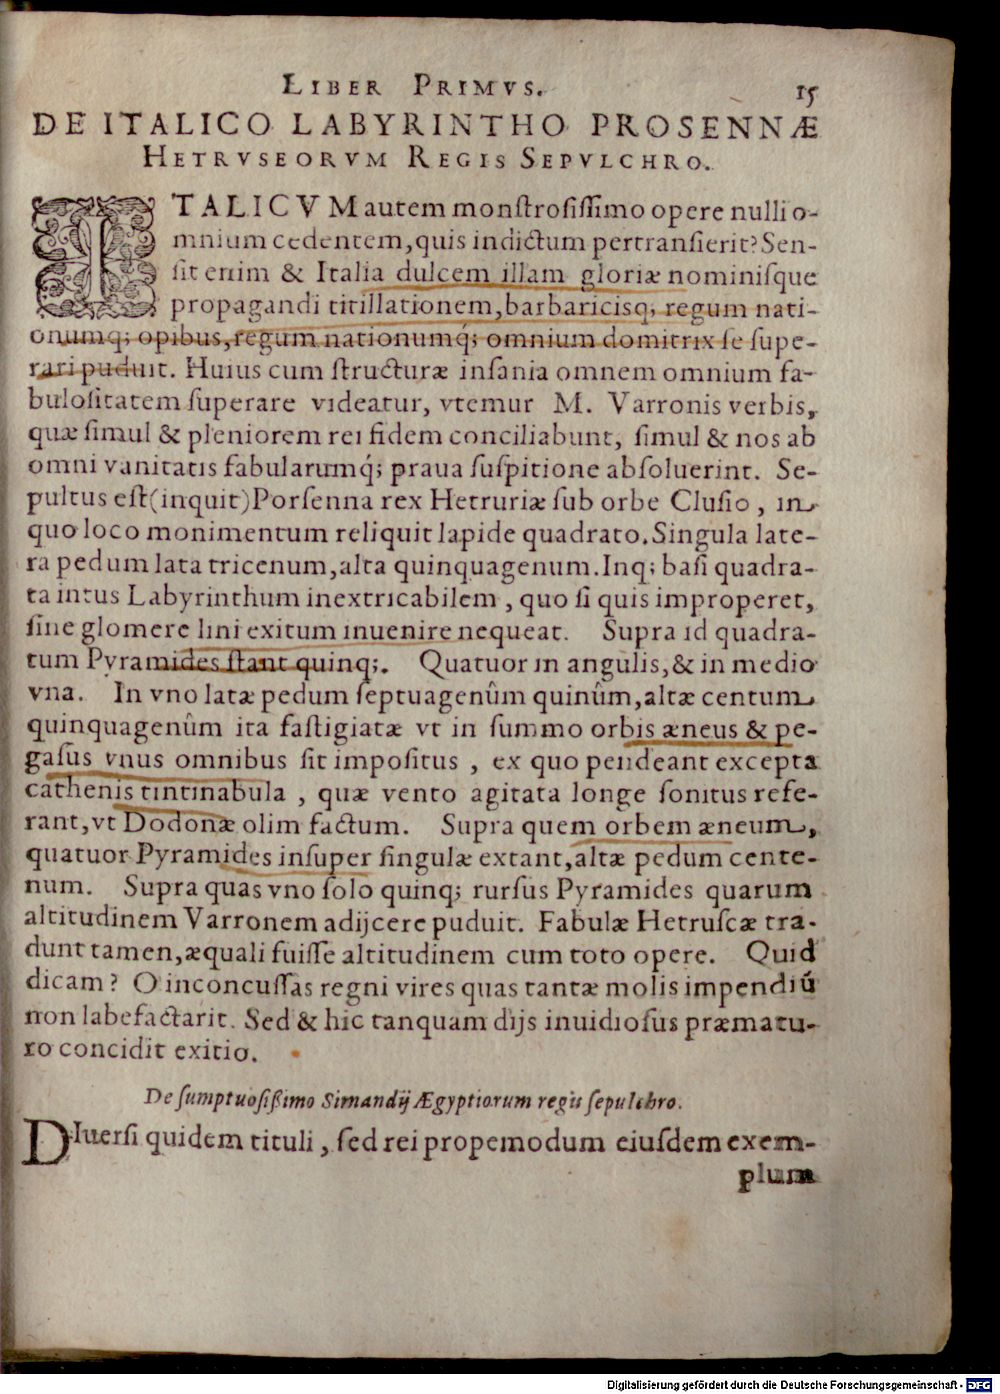 LIBER PRIMVS. 15
DE ITALICO LABYRINTHO PROSENNÆ
HETRVSEORVM REGIS SEPVLCHRO.
ITALICVM autem monſtroſiſſimo opere nulli o-
mnium cedentem, quis indictum pertranſierit? Sen-
ſit enim & Italia dulcem illam gloriæ nominiſque
propagandi titillationem, barbaricisq; regum nati-
onumq; opibus, regum nationumq́; omnium domitrix ſe ſupe-
rari puduit. Huius cum ſtructuræ inſania omnem omnium fa-
buloſitatem ſuperare videatur, vtemur M. Varronis verbis,
quæ ſimul & pleniorem rei fidem conciliabunt, ſimul & nos ab
omni vanitatis fabularumq́; praua ſuſpitione abſoluerint. Se-
pultus eſt (inquit) Porſenna rex Hetruriæ ſub orbe Cluſio, in
quo loco monimentum reliquit lapide quadrato. Singula late-
ra pedum lata tricenum, alta quinquagenum. Inq; baſi quadra-
ta intus Labyrinthum inextricabilem, quo ſi quis improperet,
ſine glomere lini exitum inuenire nequeat. Supra id quadra-
tum Pyramides ſtant quinq;. Quatuor in angulis, & in medio
vna. In vno latæ pedum ſeptuagenûm quinûm, altæ centum
quinquagenûm ita faſtigiatæ vt in ſummo orbis æneus & pe-
gaſus vnus omnibus ſit impoſitus, ex quo pendeant excepta
cathenis tintinabula, quæ vento agitata longe ſonitus refe-
rant, vt Dodonæ olim factum. Supra quem orbem æneum,
quatuor Pyramides inſuper ſingulæ extant, altæ pedum cente-
num. Supra quas vno ſolo quinq; rurſus Pyramides quarum
altitudinem Varronem adijcere puduit. Fabulæ Hetruſcæ tra-
dunt tamen, æquali fuiſſe altitudinem cum toto opere. Quid
dicam? O inconcuſſas regni vires quas tantæ molis impendiū
non labefactarit. Sed & hic tanquam dijs inuidioſus præmatu-
ro concidit exitio.
De ſumptuoſißimo Simandij Ægyptiorum regis ſepulchro.
DIuerſi quidem tituli, ſed rei propemodum eiuſdem exem-
plum
Digitalisierung gefördert durch die Deutsche Forschungsgemeinschaft - DFG